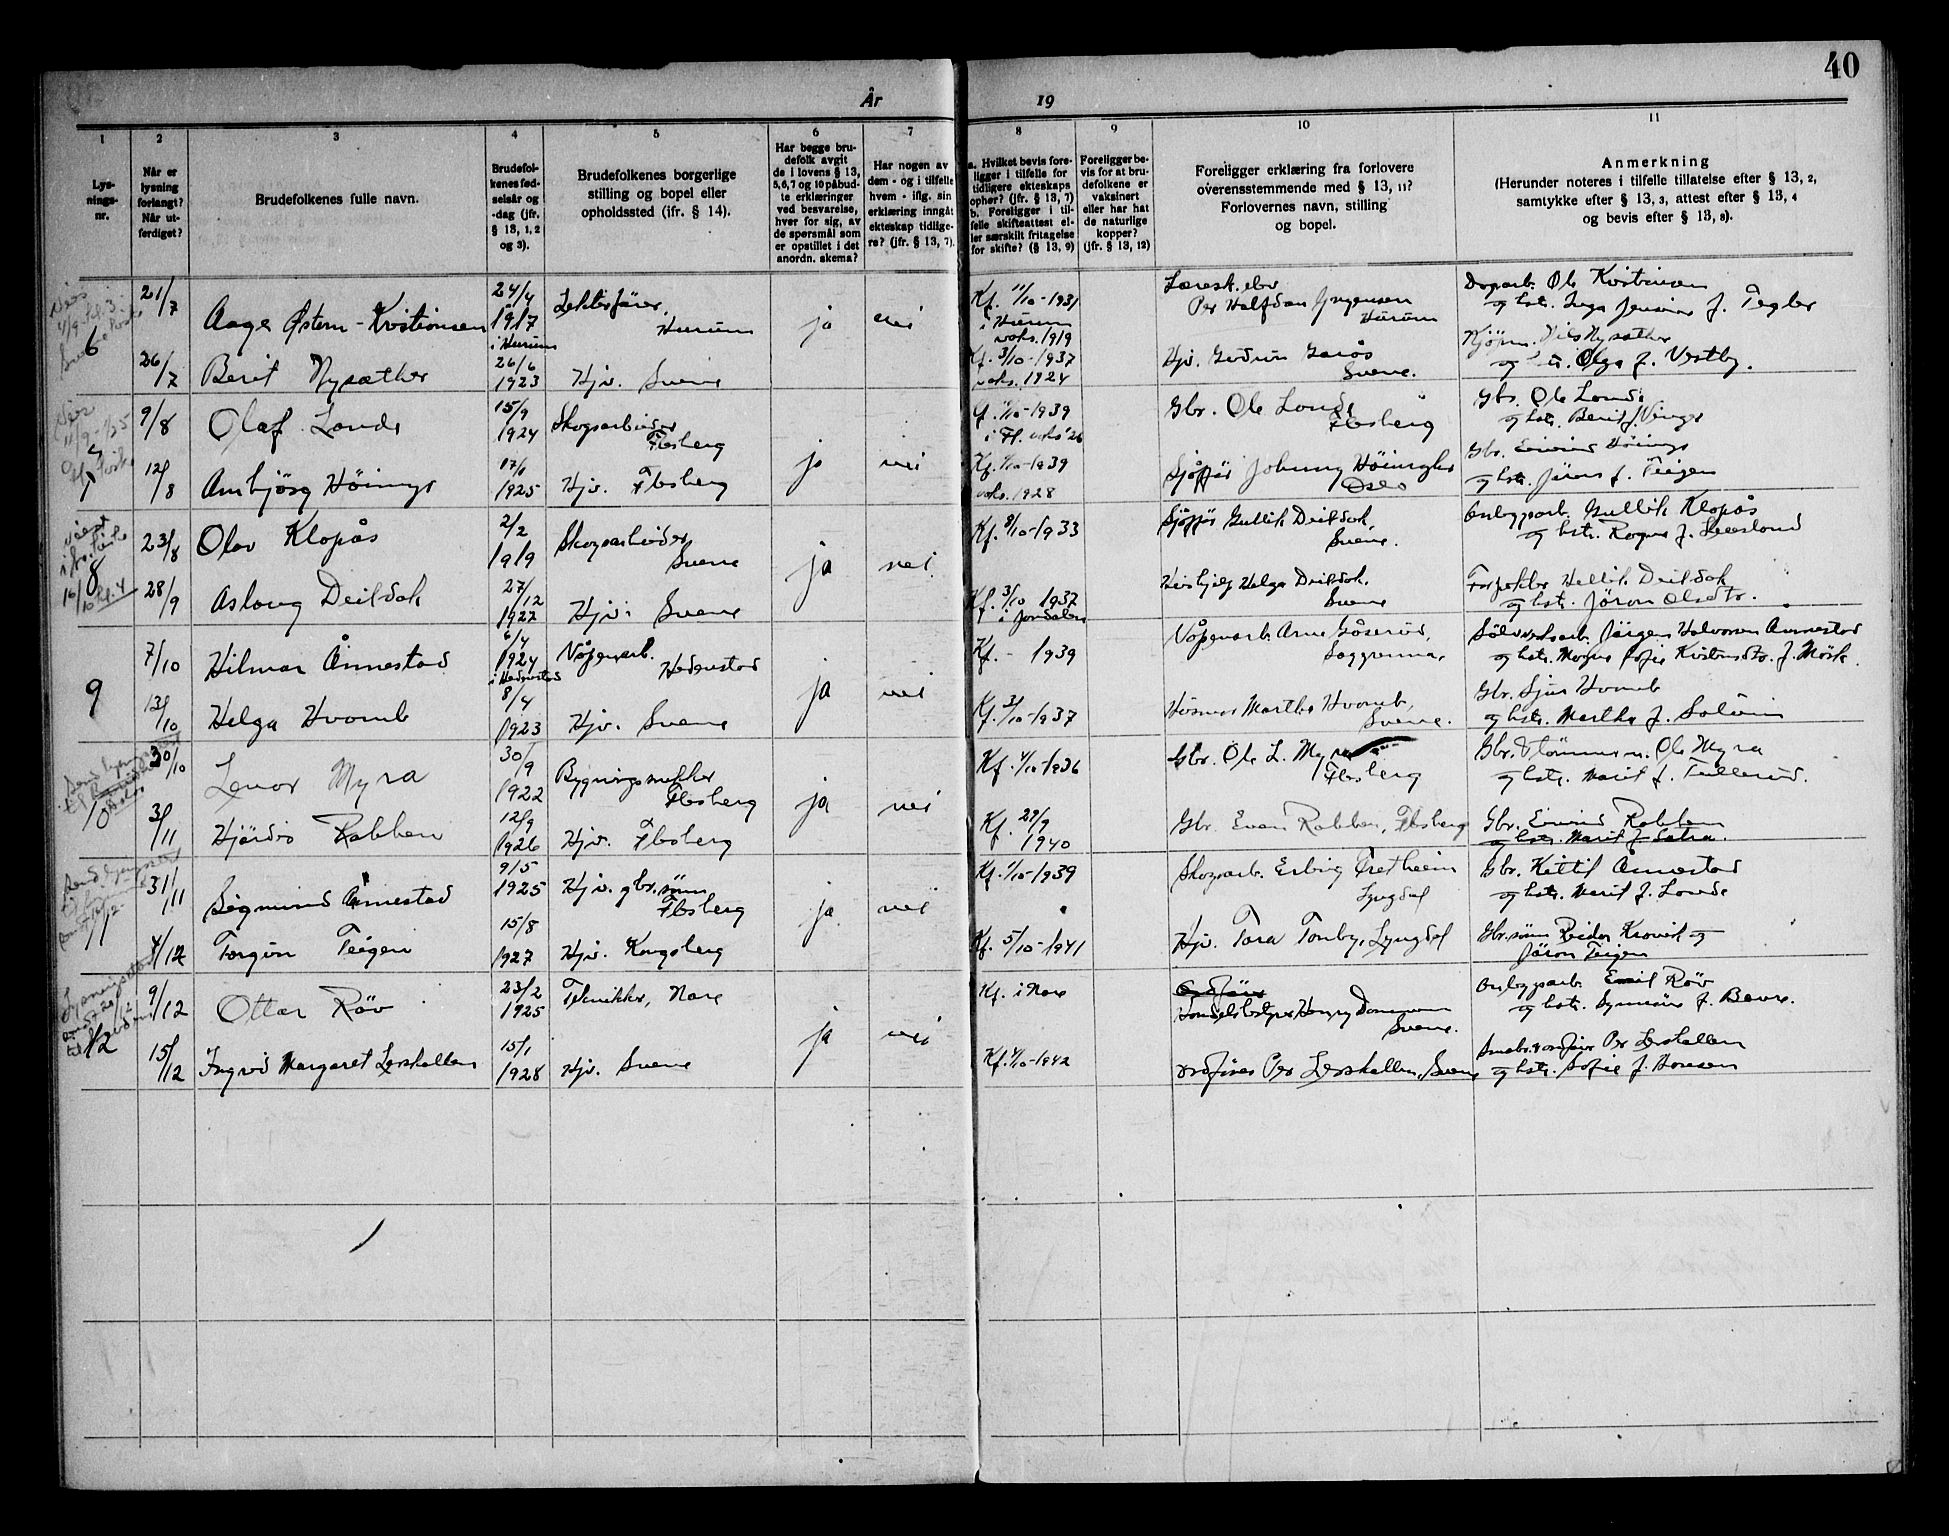 40
År
19
1 2 3 4 5 6 7 8 9 10 11
Lys-
nings-
nr.
Når er
lysning
forlangt?
Når ut-
ferdiget?
Brudefolkenes fulle navn.
Brudefol-
kenes fød-
selsår og
-dag (jfr.
§ 13, 1, 2
og 3).
Brudefolkenes borgerlige
stilling og bopel eller
opholdssted (ifr. § 14).
Har begge bru-
defolk avgit
de i lovens § 13,
5, 6, 7 og 10 påbud-
te erklæringer
ved besvarelse,
hver for sig, av
de spørsmål som
er opstillet i det
anordn. skema?
Har nogen av
dem - og i tilfelle
hvem - iflg. sin
erklæring inngåt
ekteskap tidlige-
re? (jfr. § 13, 7).
a. Hvilket bevis fore-
ligger i tilfelle for
tidligere ekteskaps
ophør? (jfr. § 13, 7)
b. Foreligger i til-
felle skifteattest el-
ler særskilt fritagelse
for skifte? (§ 13, 9)
Foreligger be-
vis for at bru-
defolkene er
vaksinert
eller har hat
de naturlige
kopper?
(jfr. § 13, 12)
Foreligger erklæring fra forlovere
overensstemmende med § 13, 11?
Forlovernes navn, stilling
og bopel.
Anmerkning
(Herunder noteres i tilfelle tillatelse efter § 13, 2,
samtykke efter § 13, 3, attest efter § 13, 4
og bevis efter § 13, 8).
6
21/7 Aage Østern-Kristiansen 24/4 1917 i Hurum
Hurum ja nei
Kf. 11/10-1931 i Hurum vaks. 1919
Per Halfdan Jørgensen Hurum
Ole Kristiansen
og hstr. Inga J. Tegler
26/7 Berit Nysæther 26/6 1923 Hjv. Svene
Kf. 3/10-1937 vaks. 1924
Hjv. Gudrun Svene.
Nils Nysæther
Olga f. Vestby.
7
9/8 Olaf Londe 15/9 1924 Skogsarbeider Flesberg ja nei
1/10-1939 i Fl. vaks '26
Gbr. Ole Londe Flesberg
Gbr. Ole Londe
og hstr. Berit f. Vinger
12/8 Ambjörg Höimyr 17/1 1925 Hjv. Flesberg
Kf. 1/10-1939 vaks. 1928
Sjåfør Johnny Oslo
Gbr. Eivind Höimyr
og hstr. Jöran f. Teigen
8
16/10 kl. 4
23/8 Olav Klopås 2/2 1919 Skogsarbeider Svene ja nei
Kf. 8/10-1933
Sjåfør Gullik Deildok, Svene.
Anleggsarb. Gullik Klopås
og hstr. Ragna f. Leeslond
28/9 Aslaug Deildok 27/12 1922 Hjv. Svene
Kf. 3/10 1937 i Jondalen
Helga Deildok. Svene
Hellik Deildok
og hstr. Jöran Olsdtr.
9
7/10 Hilmar Ånnestad 6/4 1924 i Hedenstad Våpenarb. Hedenstad ja nei
Kf. - 1939
Våpenarb. Arne Gåserud, Saggrenda.
Sölvverksarb. Jörgen Halvorsen Annestad
og hstr. Sofie Kristensdtr. f. Mörk.
13/10 Helga Hvamb 8/4 1923 Hjv. Svene
Kf. 3/10-1937
Martha Hvamb, Svene.
Gbr. Sjur Hvamb
og hstr. Martha f. Solum
10
30/10 Lenar Myra 30/9 1922 Bygningssnekker Flesberg ja nei
Kf. 4/10-1936
Gbr. Ole L. Myra Flesberg
Gbr. & tömmerm. Ole Myra
og hstr. Marit f. Tullerud.
3/11 Hjördis Robben 12/9 1926 Hjv. Flesberg
Kf. 29/9 1940
Gbr. Even Robben, Flesberg
Gbr. Eivind Robben
og hstr. Marit f. Satra.
11
31/11 Sigmund Ånnestad 9/5 1925 Hjv. gbr.sönn Flesberg ja nei
Kf. 1/10-1939
Skogsarb. Erling Bretheim Lyngdal
Gbr. Kittil Ånnestad
og hstr. Marit f. Londe
4/12 Torgun Teigen 15/8 1927 Hjv. Kongsberg
Kf. 5/10-1941
Hjv. Tora Tonby, Lyngdal
Gbr.sönn Reidar Krovik og
Jöran Teigen
12
9/12 Ottar Röv 23/2 1925 Tekniker, Nore ja nei
Kf. i Nore
Handelsbestyrer Henry Svene.
Anleggsarb. Emil Röv
og hstr. f. Bevre.
15/12 Ingrid Margaret Leshallen 15/1 1928 Hjv. Svene
Kf. 4/10-1942
Ordförer Per Leshallen, Svene
Per Leshallen
og hstr. Sofie f. Hansen